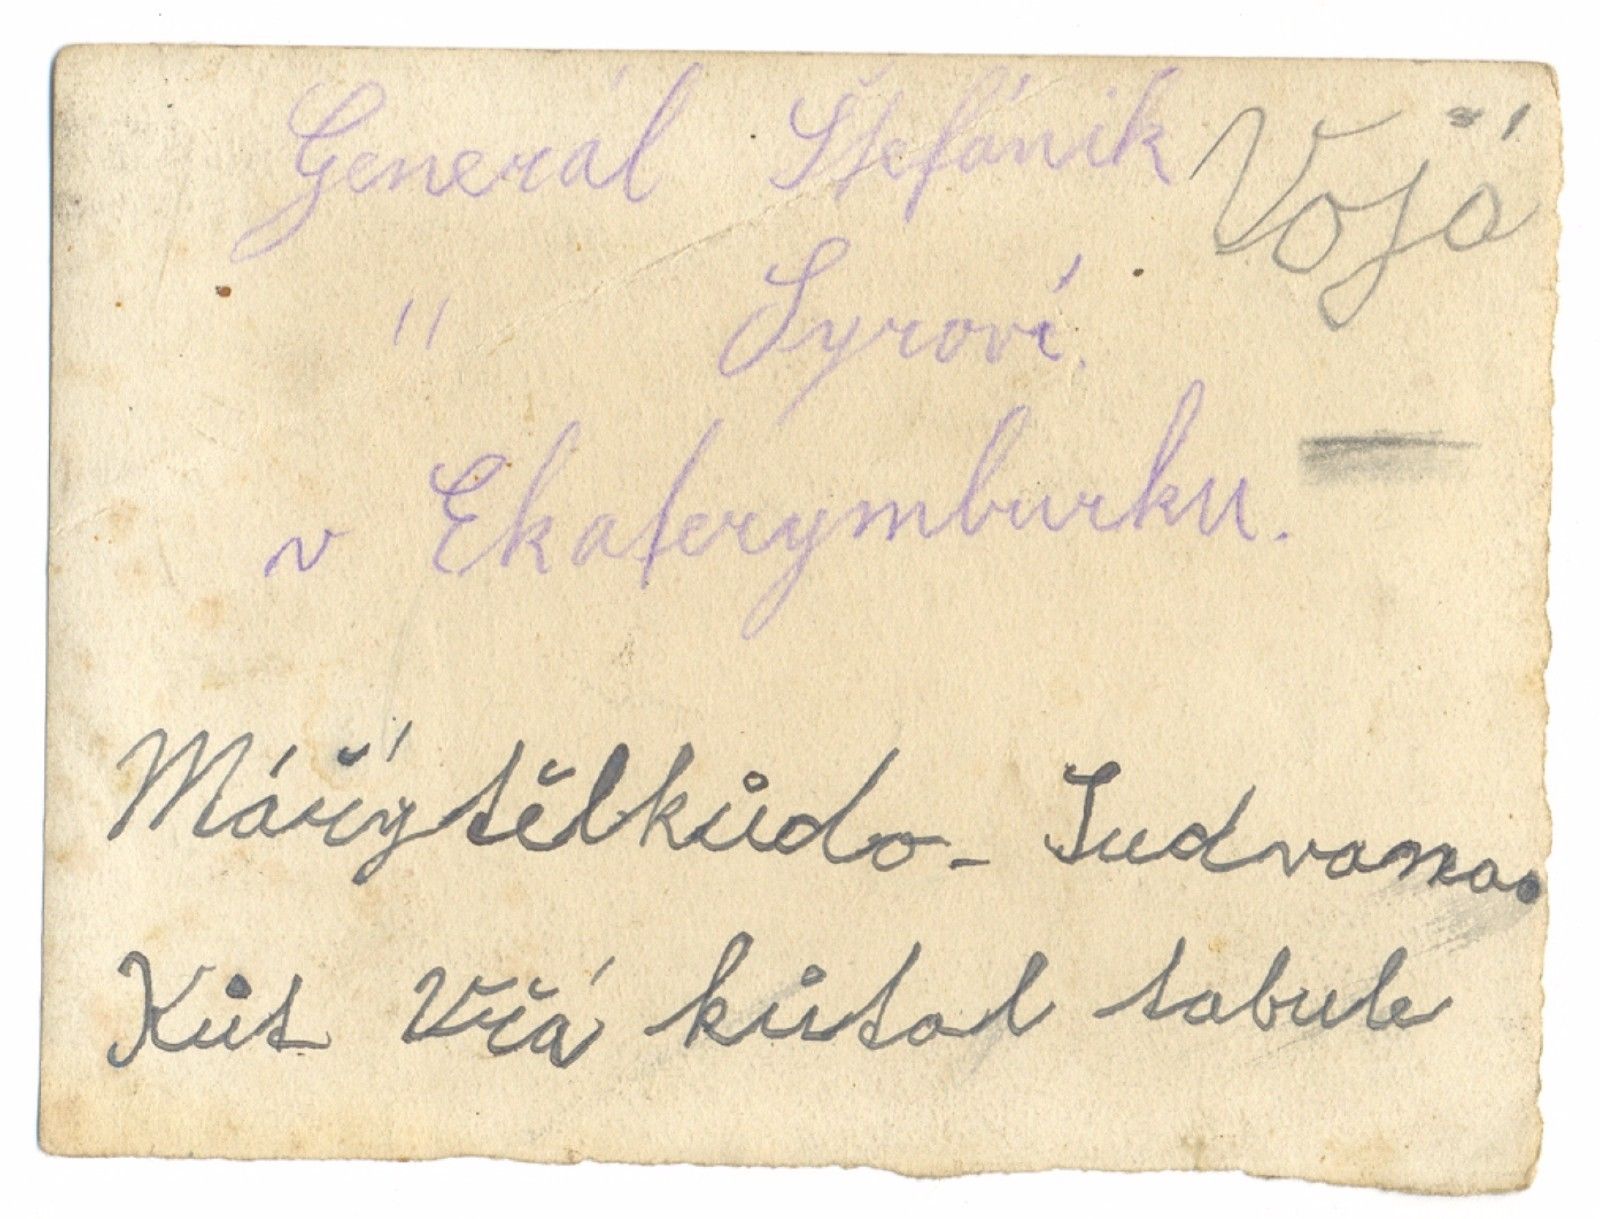 Generál Štefánik
Vojá
" Syroví.
v Ekaterymburku.
Máříg těl kůdo - Sudvama.
Kůt Vřá kůtal tabule